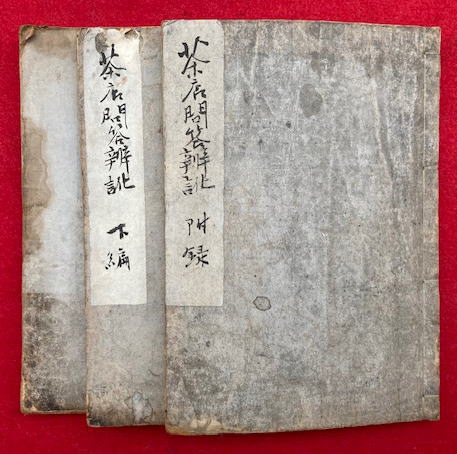 茶店問答辨訛 附録
茶店問答辨訛 下編